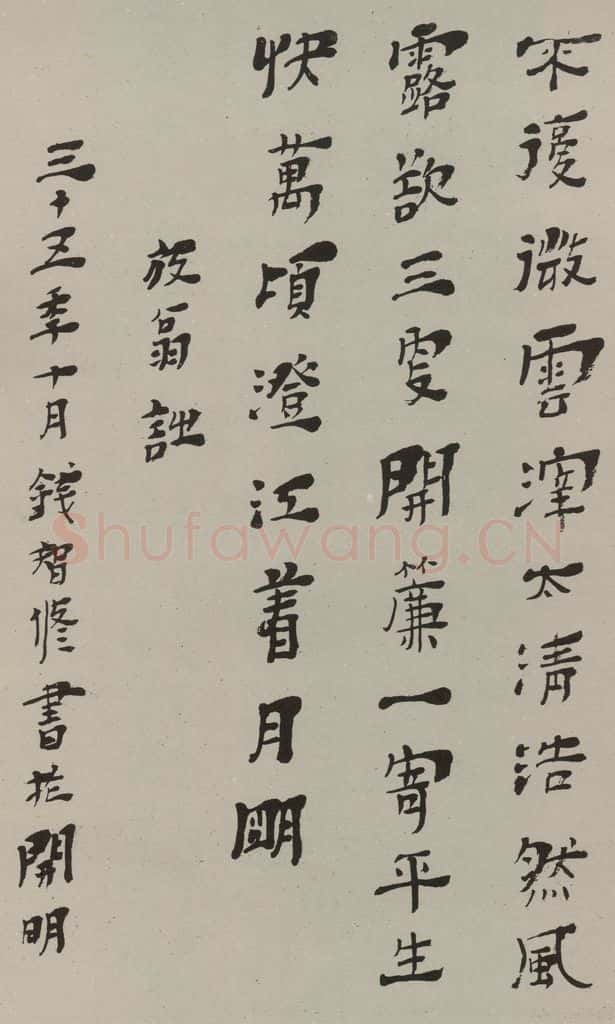 不復微雲滓太清浩然風
露欲三更開簾一寄平生
快萬頃澄江着月明
放翁詩
三十五年十月錢智修書於開明
Shufawang.CN